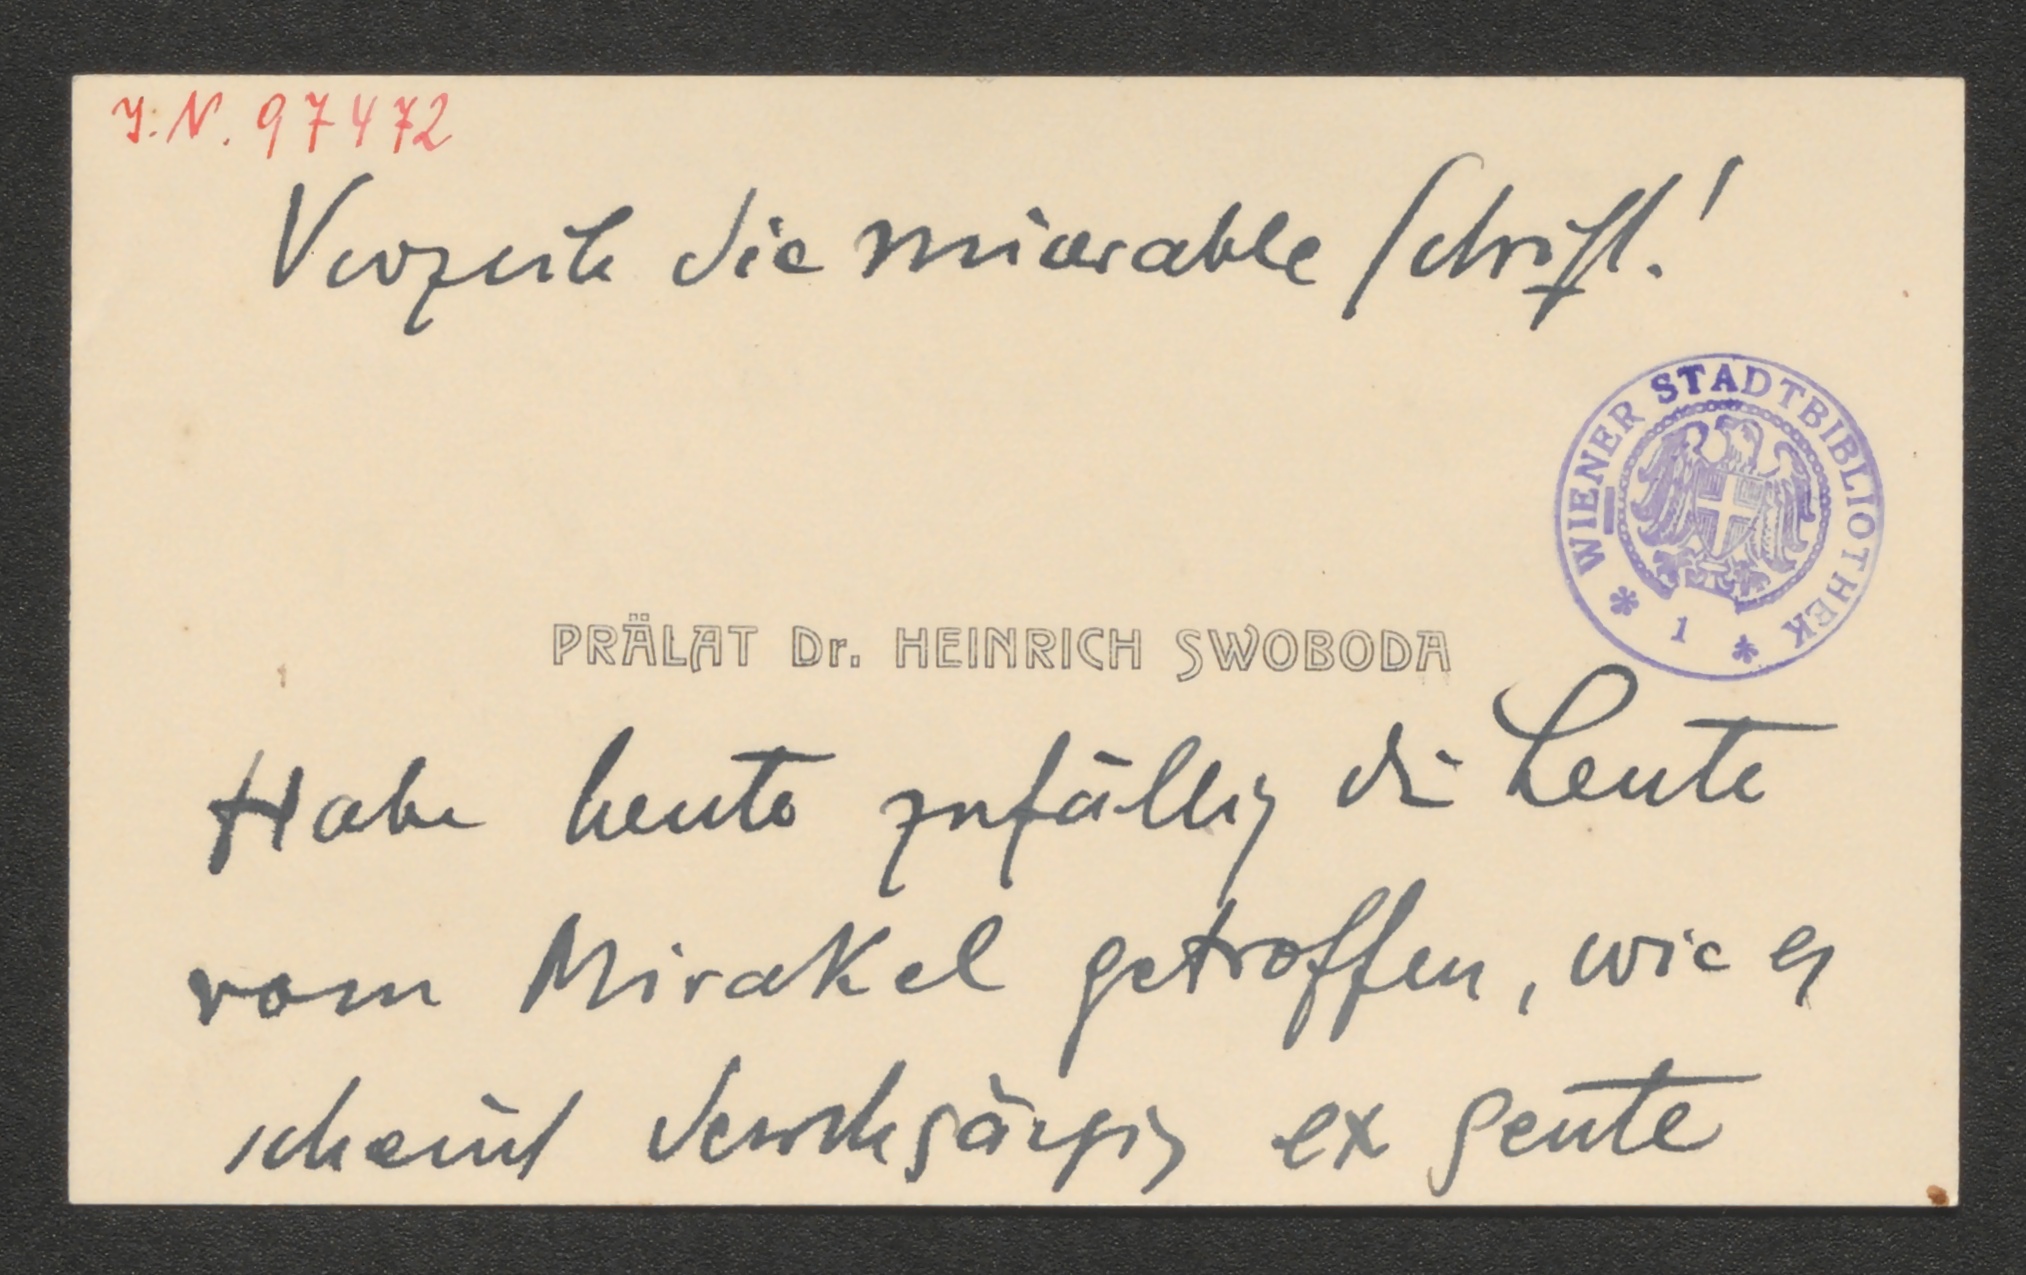 J. N. 97472
Verzeih die miserable Schrift!
WIENER STADTBIBLIOTHEK
* 1 *
PRÄLAT Dr. HEINRICH SWOBODA
Habe heute zufällig die Leute
vom Mirakel getroffen, wie es
scheint durchgängig ex gente